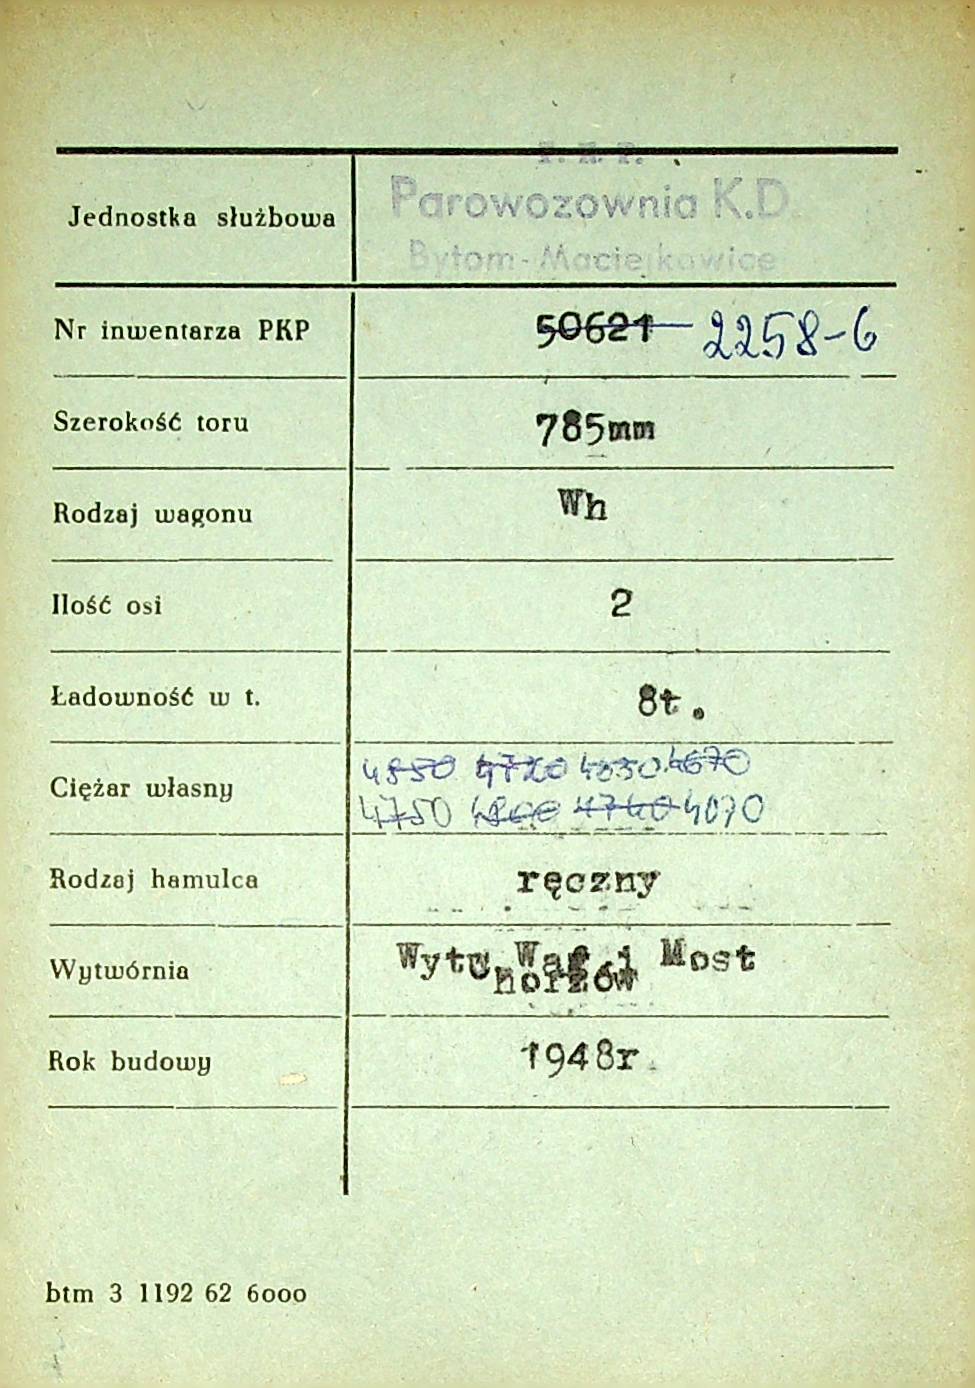 P. K. P.
Jednostka służbowa Parowozownia K.D.
Bytom-Maciejkowice
Nr inwentarza PKP 50621 2258-6
Szerokość toru 785mm
Rodzaj wagonu Wh
Ilość osi 2
Ładowność w t. 8t.
Ciężar własny 4850 4720 4830 4670
4750 4800 4740 4070
Rodzaj hamulca ręczny
Wytwórnia Wytw. Wag. i Most
Chorzów
Rok budowy 1948r.
btm 3 1192 62 6000